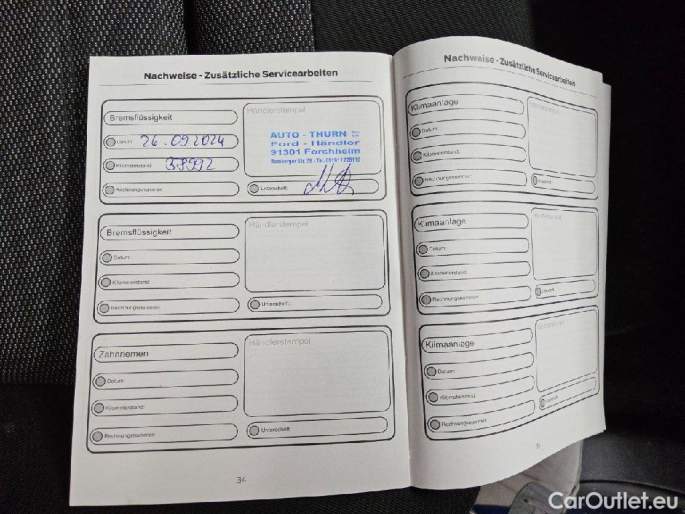 Nachweise - Zusätzliche Servicearbeiten
Bremsflüssigkeit
Händlerstempel
Datum 26.09.2024
AUTO - THURN
Ford - Händler
91301 Forchheim
Kilometerstand
Rechnungsnummer
Unterschrift
Bremsflüssigkeit
Händlerstempel
Datum
Kilometerstand
Rechnungsnummer
Unterschrift
Zahnriemen
Händlerstempel
Datum
Kilometerstand
Rechnungsnummer
Unterschrift
34
Nachweise - Zusätzliche Servicearbeiten
Klimaanlage
Datum
Kilometerstand
Rechnungsnummer
Klimaanlage
Datum
Kilometerstand
Rechnungsnummer
Klimaanlage
Datum
Kilometerstand
Rechnungsnummer
CarOutlet.eu